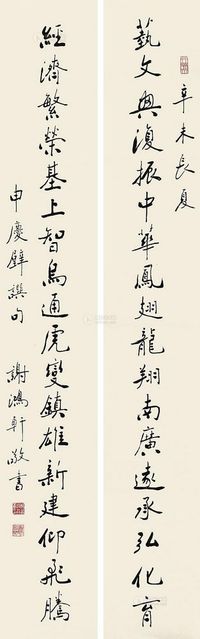 辛未長夏
藝文興復振中華鳳翅龍翔南廣遠承弘化育
經濟繁榮基上智鳥通虎變鎮雄新建仰飛騰
申慶璧譔句 謝鴻軒敬書